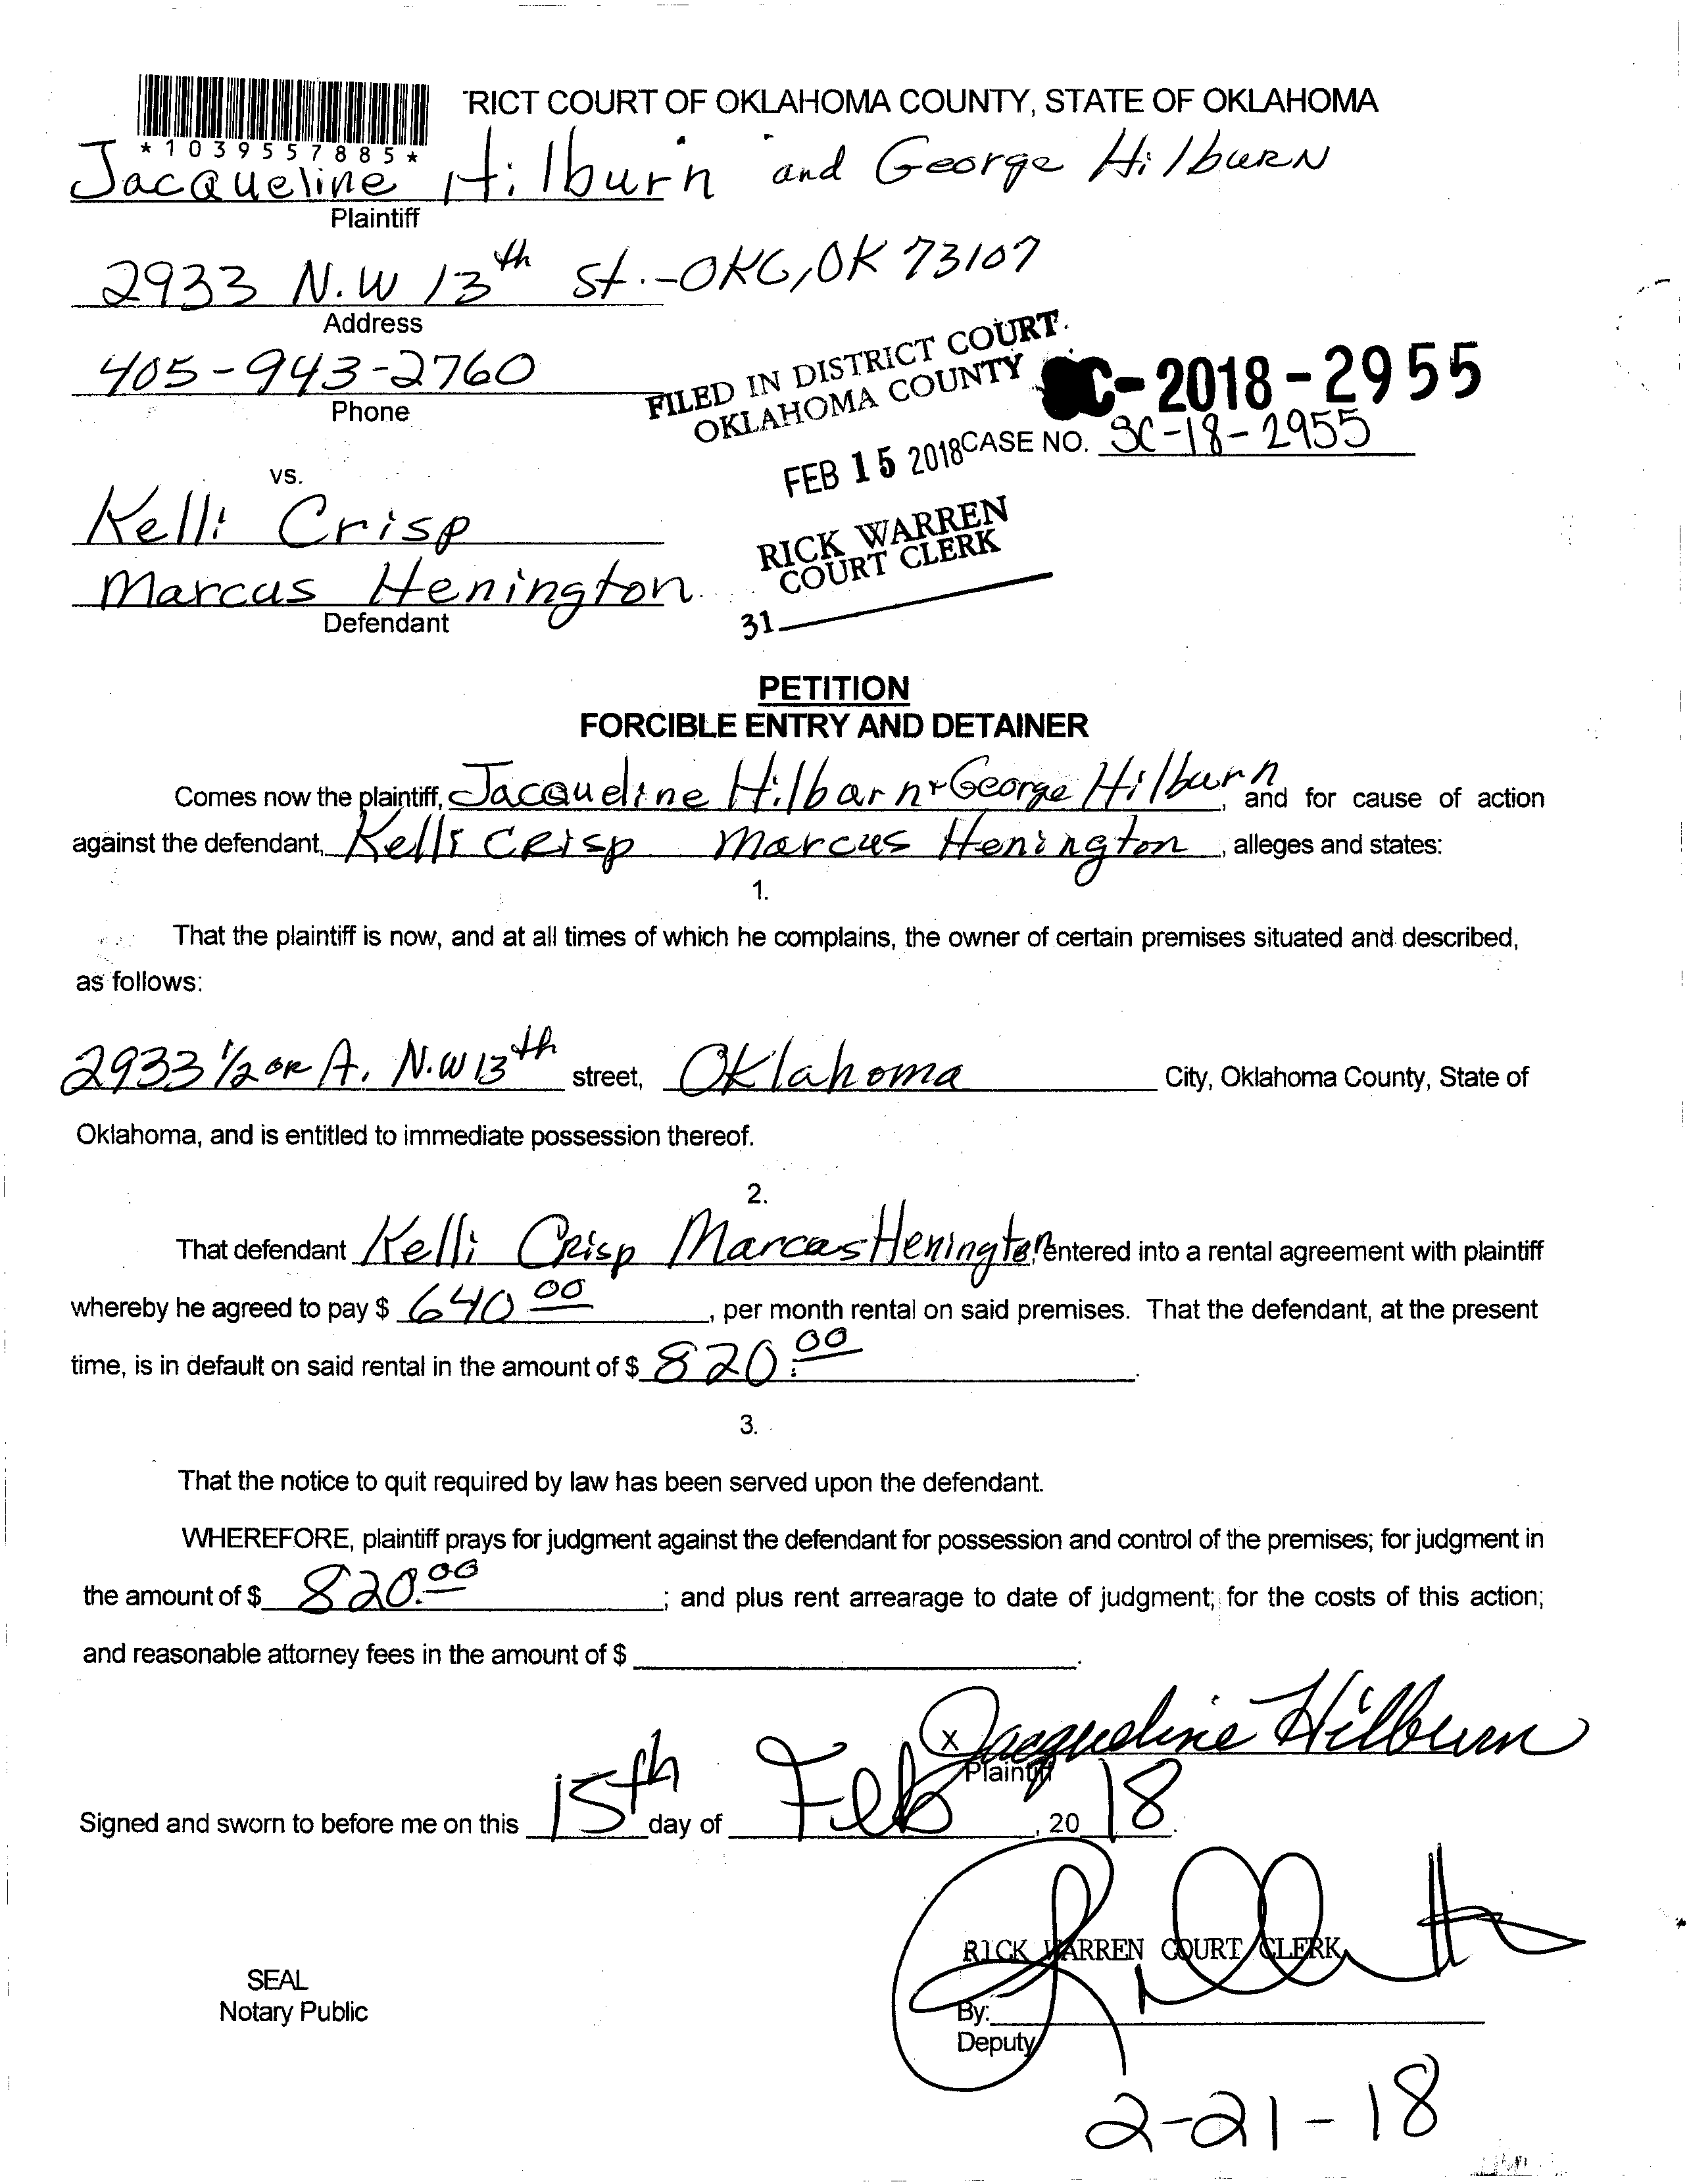 'RICT COURT OF OKLAHOMA COUNTY, STATE OF OKLAHOMA
*1039557885*
Jacqueline Hilburn and George Hilburn
Plaintiff
2933 N.W 13th St.-OKC, OK 73107
Address
405-943-2760
Phone
FILED IN DISTRICT COURT
OKLAHOMA COUNTY
C-2018-2955
FEB 15 2018
CASE NO. SC-18-2955
vs.
RICK WARREN
COURT CLERK
31
Kelli Crisp
Marcus Henington
Defendant
PETITION
FORCIBLE ENTRY AND DETAINER
Comes now the plaintiff, Jacqueline Hilburn + George Hilburn, and for cause of action
against the defendant, Kelli CRisp Marcus Henington, alleges and states:
1.
That the plaintiff is now, and at all times of which he complains, the owner of certain premises situated and described,
as follows:
2933 1/2 OR A. N.W 13th street, Oklahoma City, Oklahoma County, State of
Oklahoma, and is entitled to immediate possession thereof.
2.
That defendant Kelli CRisp Marcus Henington, entered into a rental agreement with plaintiff
whereby he agreed to pay $ 640 00, per month rental on said premises. That the defendant, at the present
time, is in default on said rental in the amount of $ 820.00.
3.
That the notice to quit required by law has been served upon the defendant.
WHEREFORE, plaintiff prays for judgment against the defendant for possession and control of the premises; for judgment in
the amount of $ 820.00; and plus rent arrearage to date of judgment; for the costs of this action;
and reasonable attorney fees in the amount of $ .
x Jacqueline Hilburn
Plaintiff
Signed and sworn to before me on this 15th day of Feb, 2018.
RICK WARREN COURT CLERK
SEAL
Notary Public
By:
Deputy
2-21-18